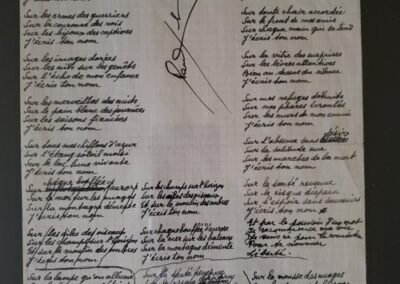 Sur les armes des guerriers
Sur la couronne des rois
Sur les bijoux des captives
J'écris ton nom
Sur les images dorées
Sur les nids sur les genêts
Sur l'écho de mon enfance
J'écris ton nom
Sur les merveilles des nuits
Sur le pain blanc des journées
Sur les saisons fiancées
J'écris ton nom
Sur tous mes chiffons d'azur
Sur l'étang soleil moisi
Sur le lac lune vivante
J'écris ton nom
Sur
Sur la mer sur les
Sur
J'écris ton nom
Sur les
Sur
Et sur le moulin des ombres
J'écris ton nom
Sur la lampe qui s'allume
Sur les champs sur l'horizon
Sur les ailes des oiseaux
Et sur le moulin des ombres
J'écris ton nom
Sur chaque bouffée d'aurore
Sur la mer sur les bateaux
Sur la montagne démente
J'écris ton nom
Sur la
Sur toute chair accordée
Sur le front de mes amis
Sur chaque main qui se tend
J'écris ton nom
Sur la vitre des surprises
Sur les lèvres attentives
Bien au-dessus du silence
J'écris ton nom
Sur mes refuges détruits
Sur mes phares écroulés
Sur les murs de mon ennui
J'écris ton nom
Sur l'absence sans désirs
Sur la solitude nue
Sur les marches de la mort
J'écris ton nom
Sur la santé revenue
Sur le risque disparu
Sur l'espoir sans souvenirs
J'écris ton nom
Et par le pouvoir d'un mot
Je recommence ma vie
Je suis né pour te connaître
Pour te nommer
Liberté.
Sur la mousse des nuages